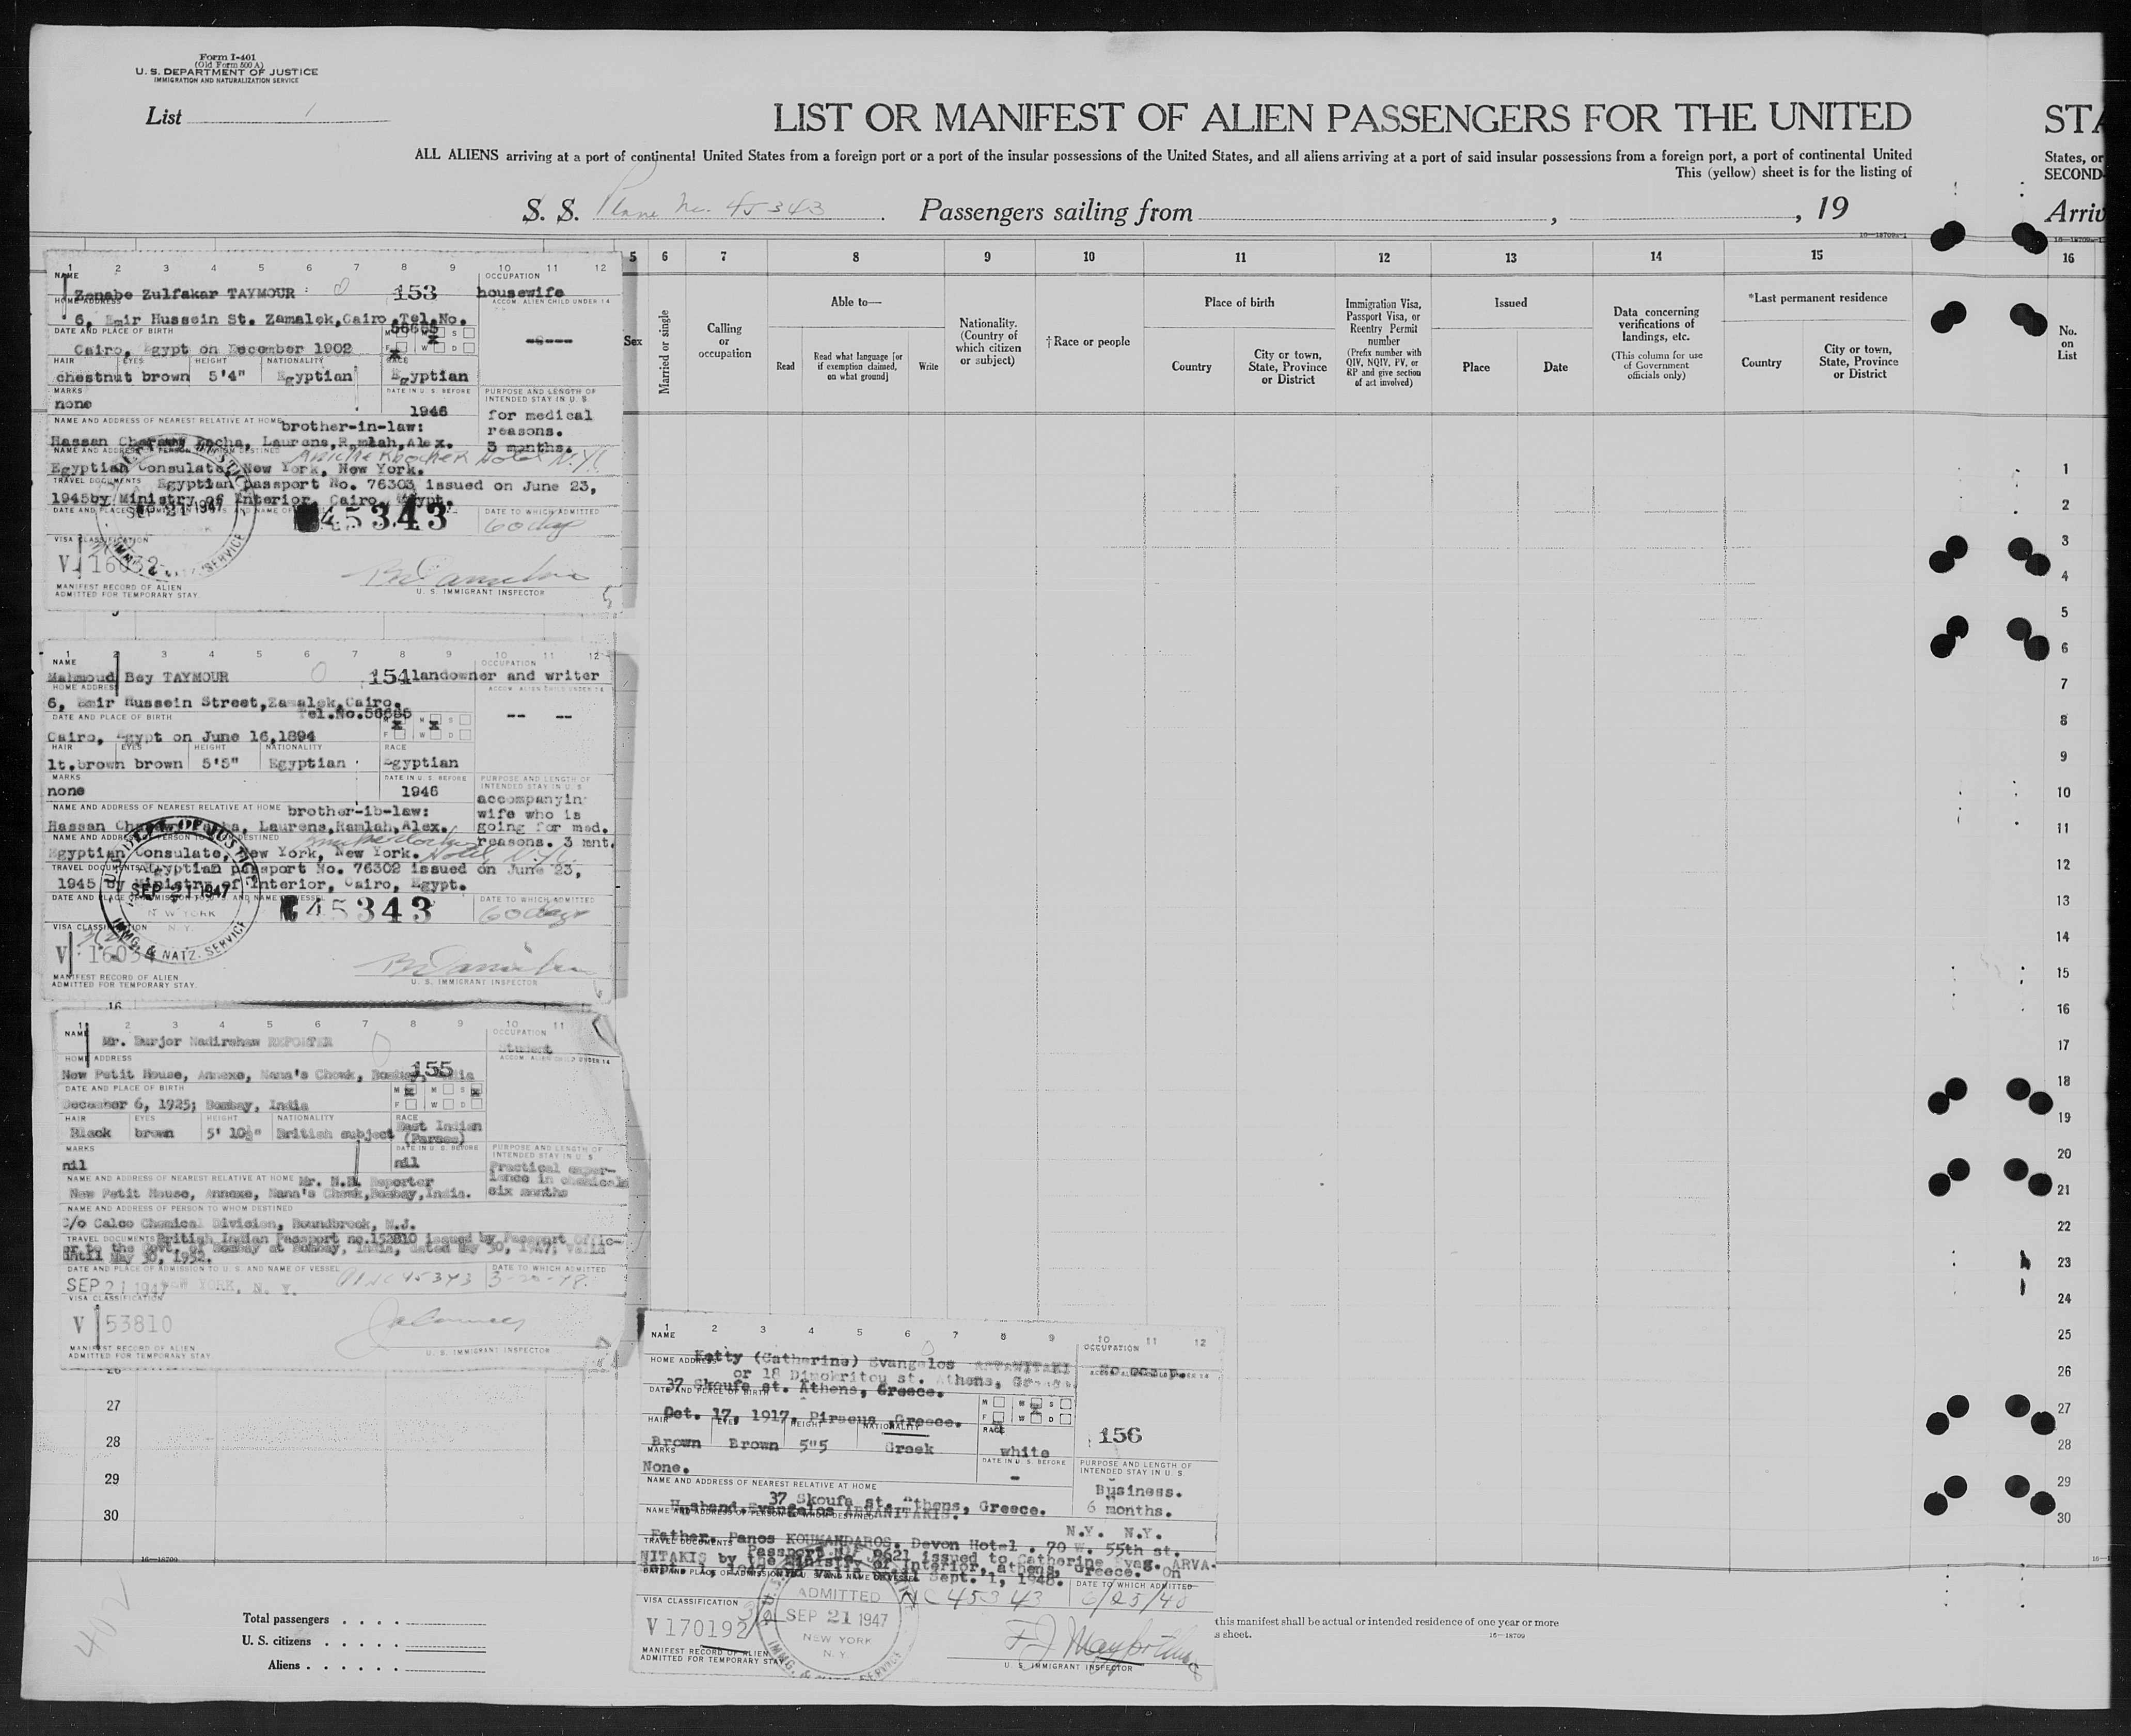 Form I-401
(Old Form 500 A)
U. S. DEPARTMENT OF JUSTICE
IMMIGRATION AND NATURALIZATION SERVICE
List 1
LIST OR MANIFEST OF ALIEN PASSENGERS FOR THE UNITED
ALL ALIENS arriving at a port of continental United States from a foreign port or a port of the insular possessions of the United States, and all aliens arriving at a port of said insular possessions from a foreign port, a port of continental United
This (yellow) sheet is for the listing of
S. S. Plane No. 45343. Passengers sailing from , , 19
STA
States, or
SECOND-
Arriv
16—18709-1
5 6 7 8 9 10 11 12 13 14 15 16
Sex
Married or single
Calling or occupation
Able to—
Read
Read what language [or if exemption claimed, on what ground]
Write
Nationality. (Country of which citizen or subject)
†Race or people
Place of birth
Country
City or town, State, Province or District
Immigration Visa, Passport Visa, or Reentry Permit number
(Prefix number with QIV, NQIV, PV, or RP and give section of act involved)
Issued
Place
Date
Data concerning verifications of landings, etc.
(This column for use of Government officials only)
*Last permanent residence
Country
City or town, State, Province or District
No. on List
1 2 3 4 5 6 7 8 9 10 11 12
NAME
Zenabe Zulfakar TAYMOUR 153
OCCUPATION
housewife
HOME ADDRESS
ACCOM. ALIEN CHILD UNDER 14
6, Emir Hussein St. Zamalek,Cairo.Tel.No.
56665
DATE AND PLACE OF BIRTH
Cairo, Egypt on December 1902
HAIR EYES HEIGHT NATIONALITY RACE
chestnut brown 5'4" Egyptian Egyptian
MARKS
none
DATE IN U. S. BEFORE
1946
PURPOSE AND LENGTH OF INTENDED STAY IN U. S.
for medical
reasons.
3 months.
NAME AND ADDRESS OF NEAREST RELATIVE AT HOME brother-in-law:
Hassan Pacha, Laurens,Ramlah,Alex.
NAME AND ADDRESS OF PERSON TO WHOM DESTINED
Hotel N.Y.
Egyptian Consulate, New York, New York.
TRAVEL DOCUMENTS Egyptian passport No. 76303 issued on June 23,
1945by Ministry of Interior, Cairo, Egypt.
DATE AND PLACE OF ADMISSION TO U. S. AND NAME OF VESSEL
SEP 21 1947
45343
DATE TO WHICH ADMITTED
60 days
VISA CLASSIFICATION
V 16032
IMMG. & NATZ. SERVICE
MANIFEST RECORD OF ALIEN
ADMITTED FOR TEMPORARY STAY
U. S. IMMIGRANT INSPECTOR
1 2 3 4 5 6 7 8 9 10 11 12
NAME
Mahmoud Bey TAYMOUR 154
OCCUPATION
landowner and writer
HOME ADDRESS
ACCOM. ALIEN CHILD UNDER 14
6, Emir Hussein Street,Zamalek,Cairo.
Tel.No.56665
DATE AND PLACE OF BIRTH
Cairo, Egypt on June 16,1894
HAIR EYES HEIGHT NATIONALITY RACE
lt.brown brown 5'5" Egyptian Egyptian
MARKS
none
DATE IN U. S. BEFORE
1946
PURPOSE AND LENGTH OF INTENDED STAY IN U. S.
accompanyin
wife who is
going for med.
reasons. 3 mnt.
NAME AND ADDRESS OF NEAREST RELATIVE AT HOME brother-ib-law:
Hassan Pacha, Laurens,Ramlah,Alex.
NAME AND ADDRESS OF PERSON TO WHOM DESTINED
Egyptian Consulate, New York, New York. Hotel, N.Y.
TRAVEL DOCUMENTS Egyptian passport No. 76302 issued on June 23,
1945 by Ministry of Interior, Cairo, Egypt.
DATE AND PLACE OF ADMISSION TO U. S. AND NAME OF VESSEL
SEP 21 1947
NEW YORK
N. Y.
IMMG. & NATZ. SERVICE
45343
DATE TO WHICH ADMITTED
60 days
VISA CLASSIFICATION
V 16034
MANIFEST RECORD OF ALIEN
ADMITTED FOR TEMPORARY STAY.
U. S. IMMIGRANT INSPECTOR
16
1 2 3 4 5 6 7 8 9 10 11
NAME
Mr. Burjor Nadirshaw REPORTER
OCCUPATION
Student
HOME ADDRESS
ACCOM. ALIEN CHILD UNDER 14
155
New Petit House, Annexe, Nana's Chowk, Bombay, India
DATE AND PLACE OF BIRTH
December 6, 1925; Bombay, India
HAIR EYES HEIGHT NATIONALITY RACE
Black brown 5' 10½" British subject East Indian
(Parsee)
MARKS
nil
DATE IN U. S. BEFORE
nil
PURPOSE AND LENGTH OF INTENDED STAY IN U. S.
Practical exper-
ience in chemicals
six months
NAME AND ADDRESS OF NEAREST RELATIVE AT HOME Mr. N.H. Reporter
New Petit House, Annexe, Nana's Chowk,Bombay,India.
NAME AND ADDRESS OF PERSON TO WHOM DESTINED
C/o Calco Chemical Division, Boundbrook, N.J.
TRAVEL DOCUMENTS British Indian Passport no.153810 issued by Passport Offic-
er to the Govt. of Bombay at Bombay, India, dated May 30, 1947; valid
until May 30, 1952.
DATE AND PLACE OF ADMISSION TO U. S. AND NAME OF VESSEL
SEP 21 1947 NEW YORK, N. Y. 45343
DATE TO WHICH ADMITTED
VISA CLASSIFICATION
V 53810
MANIFEST RECORD OF ALIEN
ADMITTED FOR TEMPORARY STAY
U. S. IMMIGRANT INSPECTOR
1 2 3 4 5 6 7 8 9 10 11 12
NAME
Ketty (Catherine) Evangelos ARVANITAKI
OCCUPATION
No occup.
HOME ADDRESS
ACCOM. ALIEN CHILD UNDER 14
or 18 Dimokritou st. Athens, Greece.
37 Skoufa st. Athens, Greece.
DATE AND PLACE OF BIRTH
Oct. 17, 1917. Piraeus ,Greece.
156
HAIR EYES HEIGHT NATIONALITY RACE
Brown Brown 5"5 Greek white
MARKS
None.
DATE IN U. S. BEFORE
-
PURPOSE AND LENGTH OF INTENDED STAY IN U. S
Business.
6 months.
NAME AND ADDRESS OF NEAREST RELATIVE AT HOME
37 Skoufa st. Athens, Greece.
Husband Evangelos ARVANITAKIS.
NAME AND ADDRESS OF PERSON TO WHOM DESTINED
N.Y. N.Y.
Father. Panos KOUMANDAROS. Devon Hotel . 70 W. 55th st.
TRAVEL DOCUMENTS
Passport issued to Catherine Evag. ARVA-
NITAKIS by the Ministry of Interior, athens, Greece. On
valid until Sept. 1, 1948.
DATE AND PLACE OF ADMISSION TO U. S. AND NAME OF VESSEL
ADMITTED
SEP 21 1947
NEW YORK
N. Y.
NC 45343
DATE TO WHICH ADMITTED
VISA CLASSIFICATION
V 170192
MANIFEST RECORD OF ALIEN
ADMITTED FOR TEMPORARY STAY
U. S. IMMIGRANT INSPECTOR
27
28
29
30
16—18709
1
2
3
4
5
6
7
8
9
10
11
12
13
14
15
16
17
18
19
20
21
22
23
24
25
26
27
28
29
30
402
Total passengers . . . .
U. S. citizens . . . . .
Aliens . . . . . .
this manifest shall be actual or intended residence of one year or more
s sheet.
16—18709